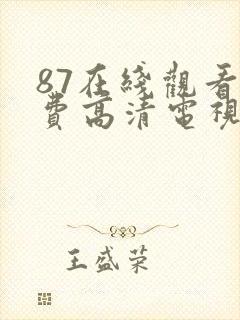 87在綫觀看
費高清電視
王盛荣